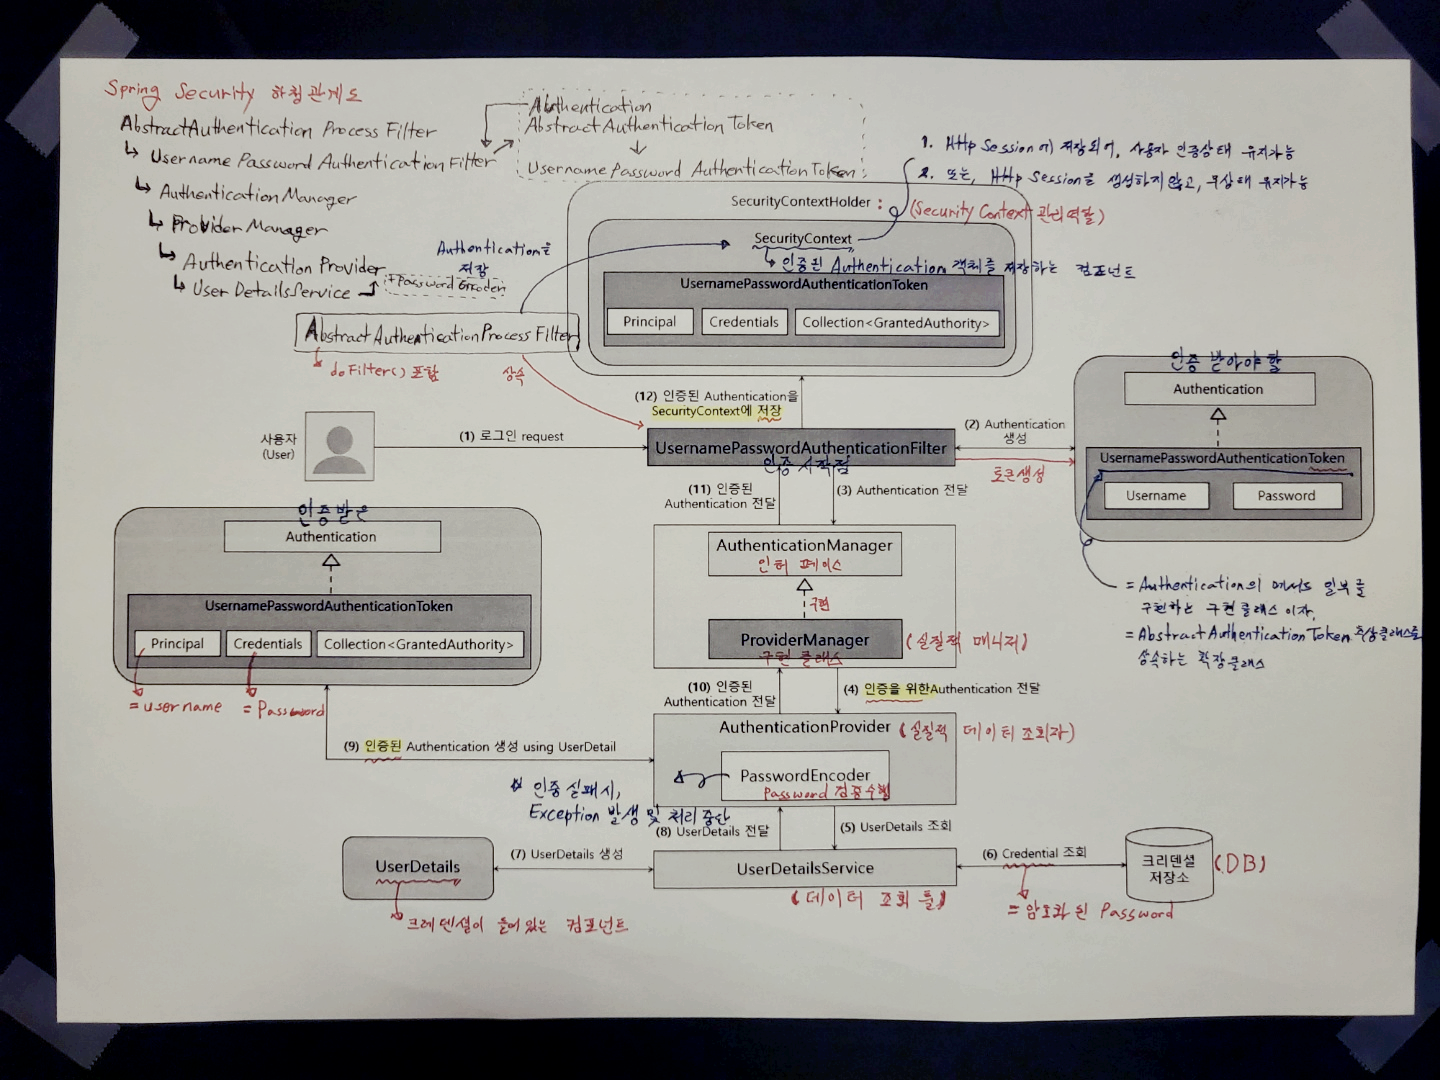 Spring Security 하청관계도
AbstractAuthentication Process Filter
↳ Username Password Authentication Filter
↳ Authentication Manager
↳ Provider Manager
↳ Authentication Provider
↳ User DetailsService
+Password Encoder
Authentication
Abstract Authentication Token
Username Password AuthenticationToken
1. Http Session에 저장되어, 사용자 인증상태 유지가능
2. 또는, Http Session을 생성하지 않고, 무상태 유지가능
SecurityContextHolder :
(Security Context 관리역할)
Authentication을
저장
SecurityContext
↳ 인증된 Authentication 객체를 저장하는 컴포넌트
UsernamePasswordAuthenticationToken
Principal
Credentials
Collection<GrantedAuthority>
AbstractAuthenticationProcess Filter
doFilter() 포함
상속
(12) 인증된 Authentication을
SecurityContext에 저장
인증 받아야 할
Authentication
UsernamePasswordAuthenticationToken
Username
Password
사용자
(User)
(1) 로그인 request
UsernamePasswordAuthenticationFilter
인증 시작점
(2) Authentication
생성
토큰생성
(11) 인증된
Authentication 전달
(3) Authentication 전달
인증 받은
Authentication
UsernamePasswordAuthenticationToken
Principal
Credentials
Collection<GrantedAuthority>
= username
= Password
AuthenticationManager
인터페이스
구현
ProviderManager
구현 클래스
(실질적 매니저)
= Authentication의 메서드 일부를
구현하는 구현클래스 이자,
= AbstractAuthenticationToken 추상클래스를
상속하는 확장클래스
(10) 인증된
Authentication 전달
(4) 인증을 위한Authentication 전달
(9) 인증된 Authentication 생성 using UserDetail
AuthenticationProvider
(실질적 데이터 조회자)
PasswordEncoder
Password 검증수행
인증 실패시,
Exception 발생 및 처리 중단
(8) UserDetails 전달
(5) UserDetails 조회
UserDetails
(7) UserDetails 생성
UserDetailsService
(데이터 조회 툴)
(6) Credential 조회
크리덴셜
저장소
(DB)
크레덴셜이 들어있는 컴포넌트
= 암호화 된 Password